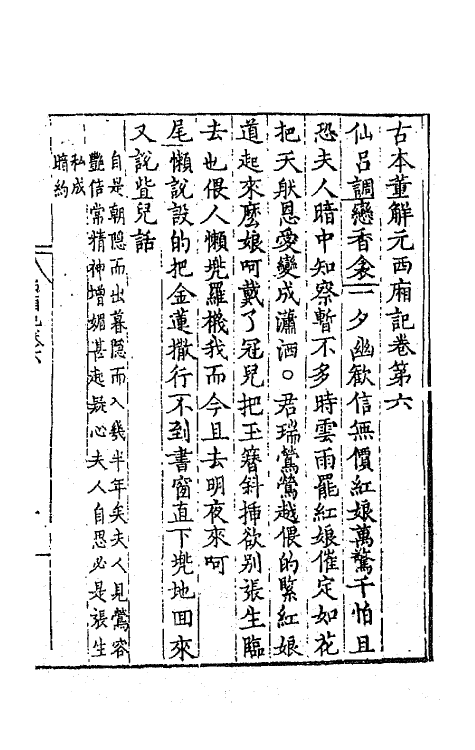 古本董解元西廂記卷第六
仙呂調戀香衾一夕幽歡信無價紅娘萬驚千怕且
恐夫人暗中知察暫不多時雲雨罷紅娘催定如花
把天般恩愛變成瀟洒○君瑞鶯鶯越偎的緊紅娘
道起來麽娘呵戴了冠兒把玉簪斜揷欲別張生臨
去也偎人懶兠羅襪我而今且去明夜來呵
尾懶說設的把金蓮撒行不到書窗直下兠地回來
又說些兒話
自是朝隱而出暮隱而入幾半年矣夫人見鶯容
艷倍常精神增媚甚起疑心夫人自思必是張生
私成
暗約